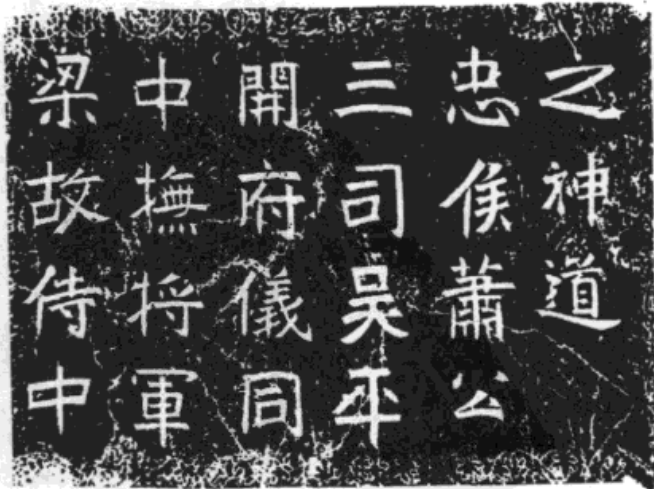 梁故侍中
中撫將軍
開府儀同
三司吴平
忠侯蕭公
之神道